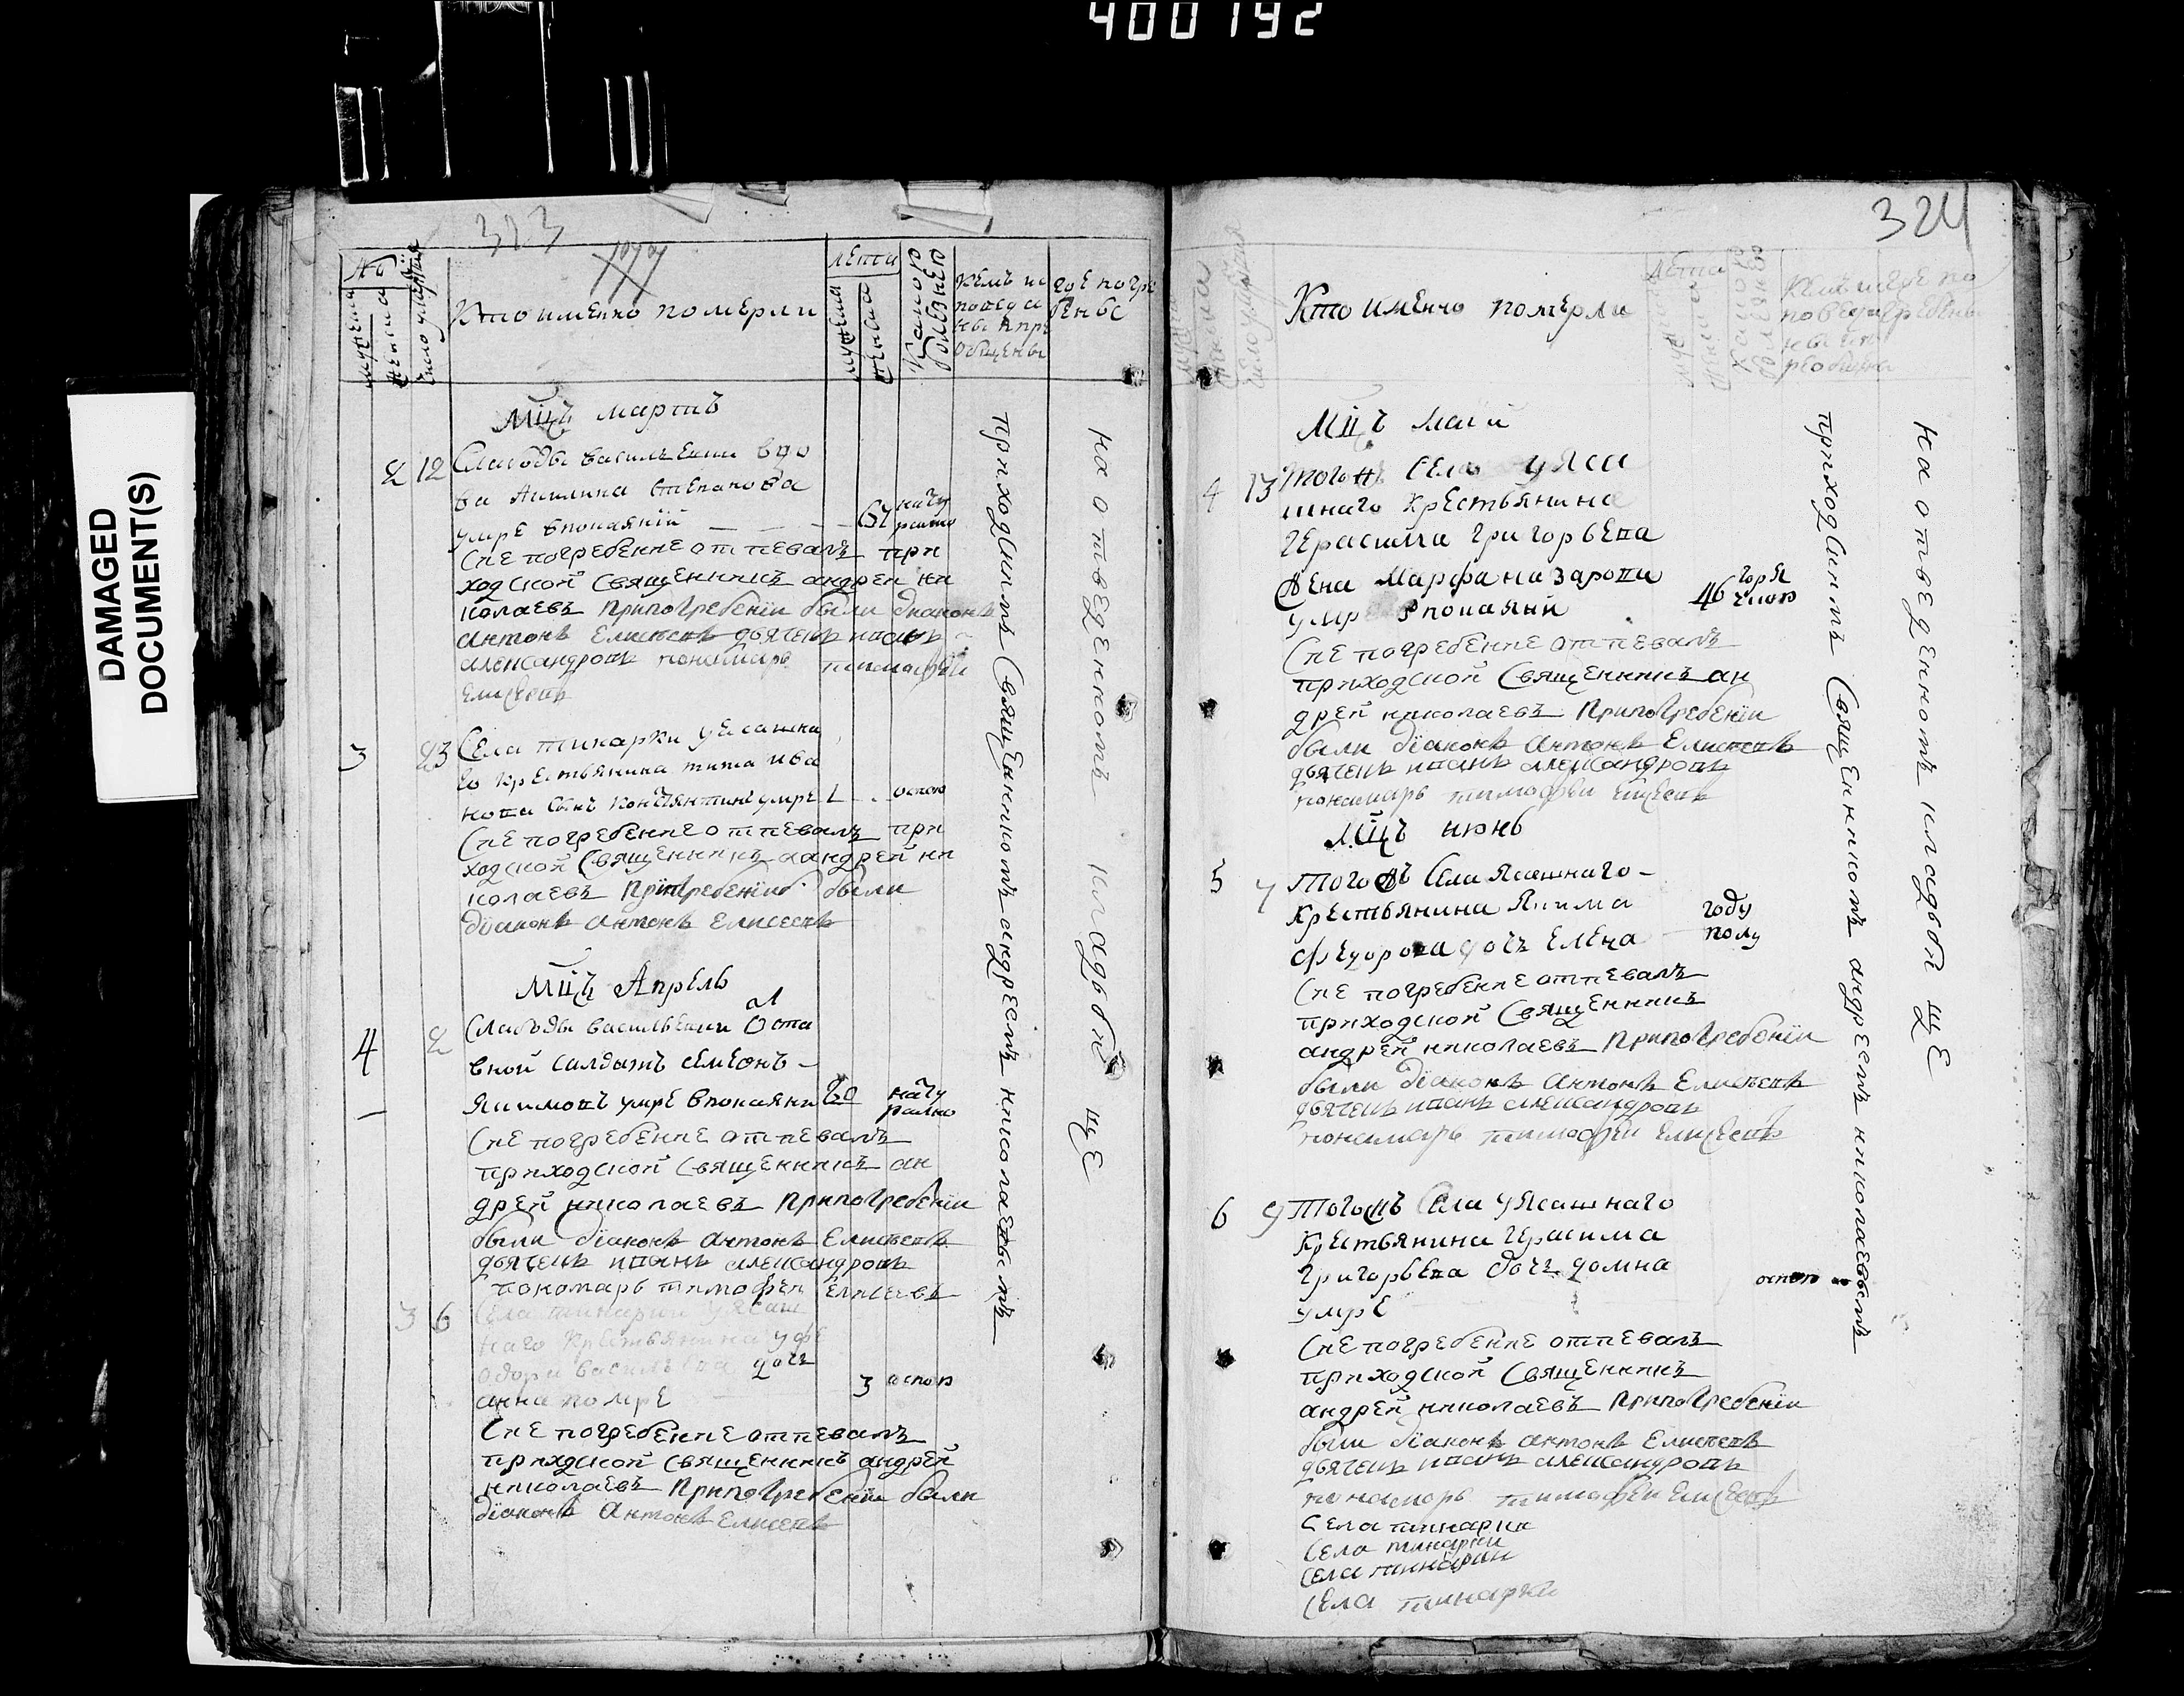 400192
DAMAGED
DOCUMENT(S)
323
№
мужеска
женска
число умертвия
Кто именно померли
лета
мужеска
женска
Какою
болезнею
Кемъ ис
поведа
ны и прі
общены
где погре
бены
Мцъ мартъ
2 12 Слабоды василевки вдо
ва Акилина степанова
умре впокаянїи 61 нату
рално
Сие погребение отпевалъ при
ходской священникъ андреи ни
колаевъ припогребенїи были дїаконъ
антонъ Елисеевъ дьячекъ иванъ
александровъ пономарь тимофеи
Елисеевъ
3 23 Села тинарки уясашна
го крестьянина тита ива
нова сынъ констянтинъ умре 1 оспою
Сие погребение отпевалъ при
ходской священникъ андрей ни
колаевъ припогребенїи были
дїаконъ антонъ Елисеевъ
Мцъ Апрель
4 2 Слабоды василевки Оста
вной салдатъ семионъ
Якимовъ умре впокаяни 60 нату
рално
Сие погребение отпевалъ
приходской священникъ ан
дрей николаевъ припогребенїи
были дїаконъ антонъ Елисеевъ
дьячекъ иванъ александровъ
пономарь тимофеи Елисеевъ
3 6 Села тинарки уясаш
наго крестьянина уфе
одора васильева дочь
анна помре 3 оспою
Сие погребение отпевалъ
приходской священникъ андрей
николаевъ припогребенїи были
дїаконъ Антонъ Елисеевъ
приходскимъ священникомъ андреемъ николаевымъ
на отведенномъ кладбищѣ
324
Кто именно померли
лета
Мцъ маїй
4 13 Тогожъ Села уяса
шнаго крестьянина
Герасима григорьева
жена Марфа назарова
умре впокаянїи 46 горя
чкою
Сие погребение отпевалъ
приходской священникъ ан
дрей николаевъ припогребенїи
были дїаконъ антонъ Елисеевъ
дьячекъ иванъ александровъ
пономарь тимофеи Елисеевъ
Мцъ июнь
5 7 Тогожъ Села Ясашнаго
крестьянина Якима
федорова дочь Елена году
полу
Сие погребение отпевалъ
приходской священникъ
андрей николаевъ припогребенїи
были дїаконъ антонъ Елисеевъ
дьячекъ иванъ александровъ
пономарь тимофеи Елисеевъ
6 9 Тогожъ Села уясашнаго
крестьянина Герасима
григорьева дочь домна
умре оспою
Сие погребение отпевалъ
приходской священникъ
андрей николаевъ припогребенїи
были дїаконъ антонъ Елисеевъ
дьячекъ иванъ александровъ
пономарь тимофеи Елисеевъ
Села тинарки
Села тинарки
Села тинарки
Села тинарки
приходскимъ священникомъ андреемъ николаевымъ
на отведенномъ кладбищѣ